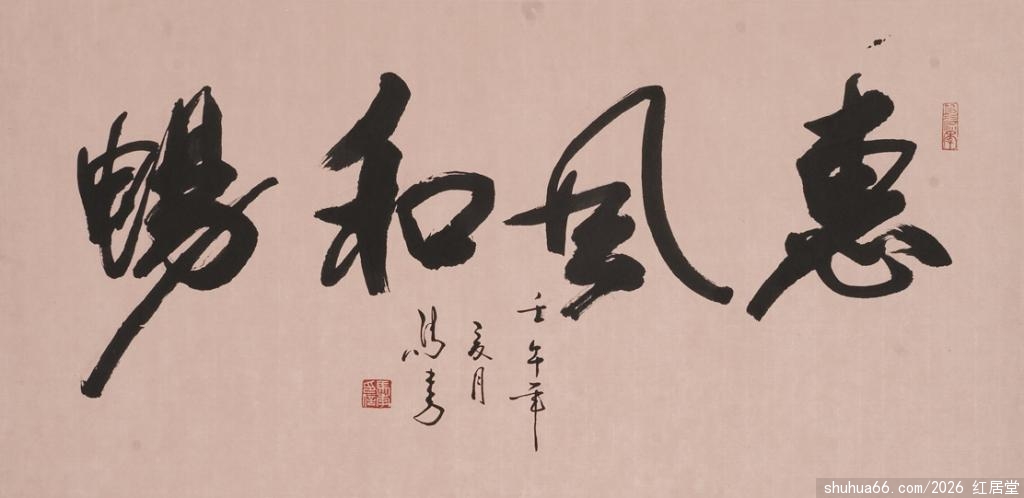 惠風和暢
壬午年
夏月
馮書
shuhua66.com/2026 红居堂